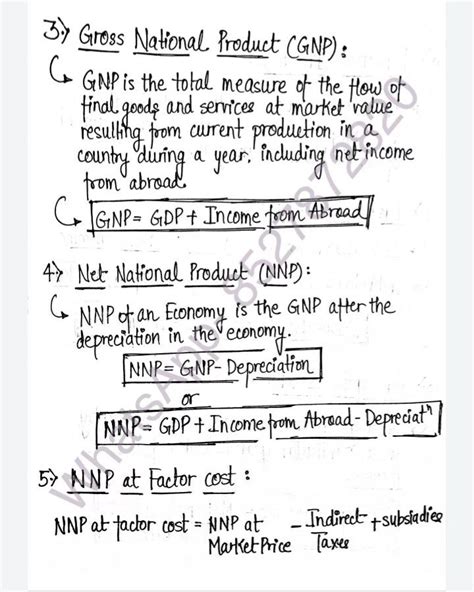 3.) Gross National Product (GNP):
GNP is the total measure of the flow of
final goods and services at market value
resulting from current production in a
country during a year, including net income
from abroad.
GNP = GDP + Income from Abroad
4) Net National Product (NNP):
NNP of an Economy is the GNP after the
depreciation in the economy.
NNP = GNP - Depreciation
or
NNP = GDP + Income from Abroad - Depreciatⁿ
5) NNP at Factor cost :
NNP at factor cost = NNP at Market Price - Indirect Taxes + subsiadies
WhatsApp - 8527872820